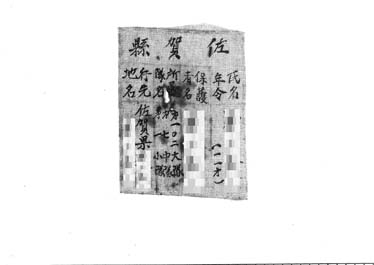 佐賀縣
氏名
年令 (一一才)
保護者名
所属隊名 第一〇二大隊
第一七中隊
小隊
行先地名 佐賀県